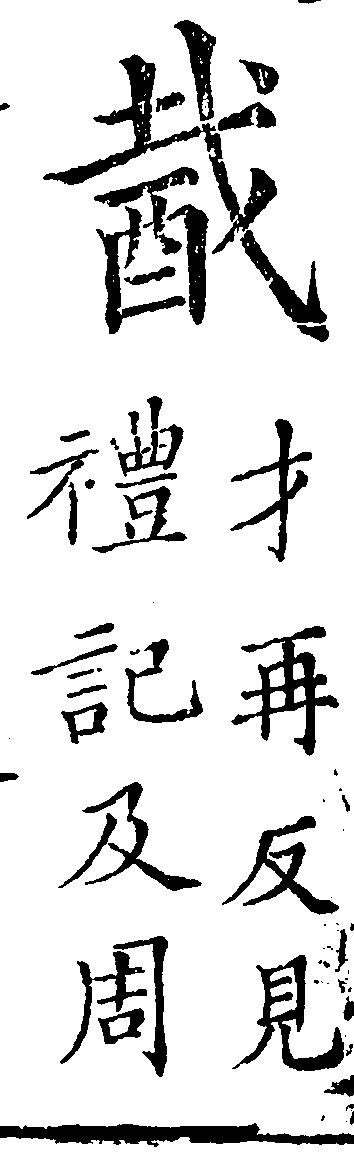 酨
才再反見
禮記及周